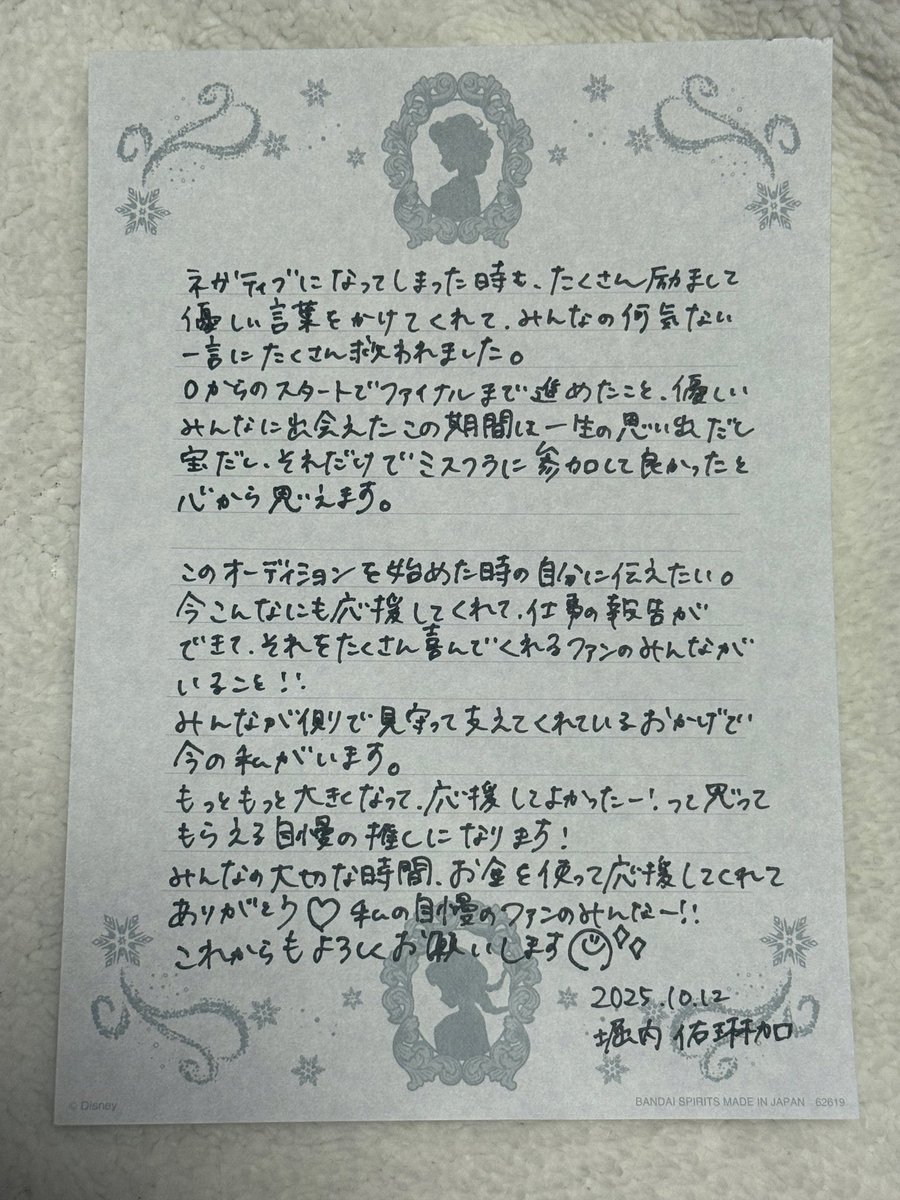 ネガティブになってしまった時も、たくさん励まして
優しい言葉をかけてくれて、みんなの何気ない
一言にたくさん救われました。
0からのスタートでファイナルまで進めたこと、優しい
みんなに出会えたこの期間は一生の思い出だし
宝だし、それだけでミスフラに参加して良かったと
心から思えます。
このオーディションを始めた時の自分に伝えたい。
今こんなにも応援してくれて、仕事の報告が
できて、それをたくさん喜んでくれるファンのみんなが
いること!!
みんなが側で見守って支えてくれているおかげで
今の私がいます。
もっともっと大きくなって、応援してよかったー!って思って
もらえる自慢の推しになります!
みんなの大切な時間、お金を使って応援してくれて
ありがとう♡ 私の自慢のファンのみんなー!!
これからもよろしくお願いします
2025.10.12
堀内 佑琳加
© Disney
BANDAI SPIRITS MADE IN JAPAN 62619